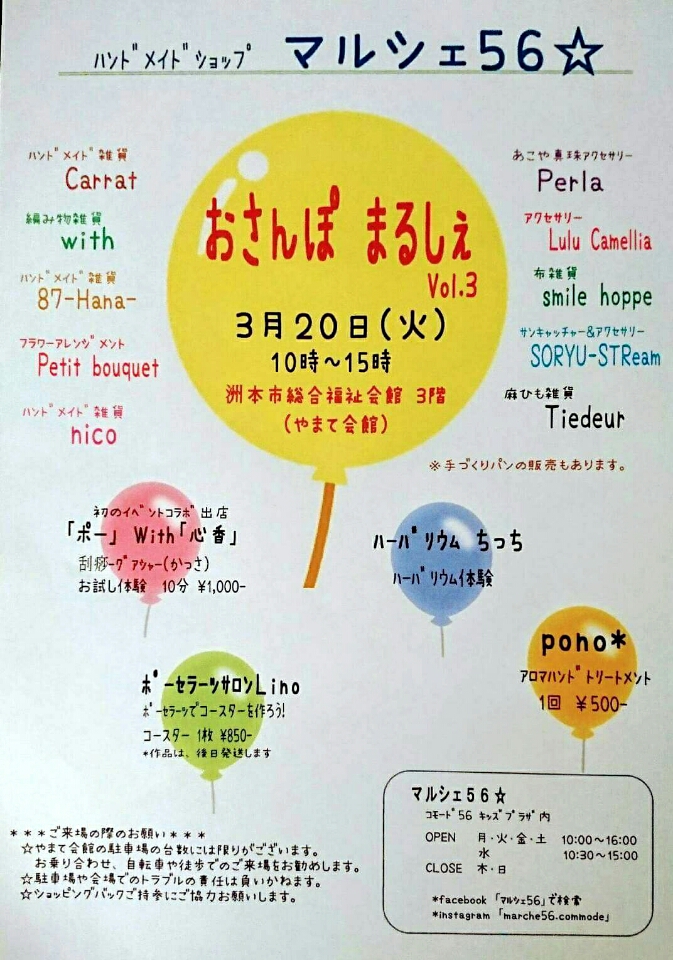 ハンドメイドショップ マルシェ56☆
おさんぽ まるしぇ
Vol.3
3月20日(火)
10時～15時
洲本市総合福祉会館 3階
(やまて会館)
ハンドメイド雑貨
Carrat
編み物雑貨
with
ハンドメイド雑貨
87-Hana-
フラワーアレンジメント
Petit bouquet
ハンドメイド雑貨
nico
あこや真珠アクセサリー
Perla
アクセサリー
Lulu Camellia
布雑貨
smile hoppe
サンキャッチャー&アクセサリー
SORYU-STReam
麻ひも雑貨
Tiedeur
※手づくりパンの販売もあります。
初のイベントコラボ出店
「ポー」 With「心香」
刮痧-グアシャー(かっさ)
お試し体験 10分 ¥1,000-
ハーバリウム ちっち
ハーバリウム体験
ポーセラーツサロンLino
ポーセラーツでコースターを作ろう!
コースター 1枚 ¥850-
*作品は、後日発送します
poho*
アロマハンドトリートメント
1回 ¥500-
***ご来場の際のお願い***
☆やまて会館の駐車場の台数には限りがございます。
お乗り合わせ、自転車や徒歩でのご来場をお勧めします。
☆駐車場や会場でのトラブルの責任は負いかねます。
☆ショッピングバックご持参にご協力お願いします。
マルシェ56☆
コモード56 キッズプラザ内
OPEN 月・火・金・土 10:00～16:00
水 10:30～15:00
CLOSE 木・日
*facebook 「マルシェ56」で検索
*instagram 「marche56.commode」